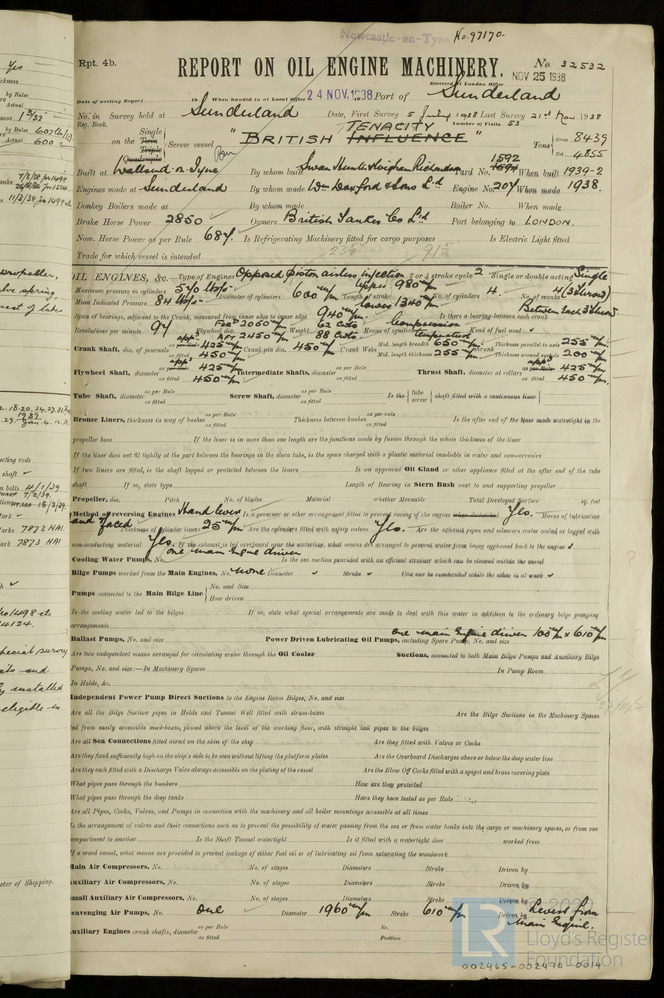 Newcastle-on-Tyne No. 97170
Rpt. 4b.
REPORT ON OIL ENGINE MACHINERY.
No 32532
NOV 25 1938
Received at London Office
Date of writing Report When handed in at Local Office 24 NOV. 1938 Port of Sunderland
No. in Reg. Book. Survey held at Sunderland Date, First Survey 5 July 1938 Last Survey 21st Nov 1938
Number of Visits 53
Single
on the Twin Triple Quadruple Screw vessel "BRITISH INFLUENCE" TENACITY Tons Gross 8439 Net 4855
Built at Wallsend on Tyne By whom built Swan Hunter Wigham Richardson Yard No. 1592 When built 1939-2
Engines made at Sunderland By whom made Wm Doxford & Sons Ld Engine No. 204 When made 1938.
Donkey Boilers made at By whom made Boiler No. When made
Brake Horse Power 2850 Owners British Tanker Co Ld Port belonging to LONDON.
Nom. Horse Power as per Rule 684. Is Refrigerating Machinery fitted for cargo purposes Is Electric Light fitted
Trade for which vessel is intended
OIL ENGINES, &c. Type of Engines Opposed piston airless injection 2 or 4 stroke cycle 2 Single or double acting Single
Maximum pressure in cylinders 570 lbs Diameter of cylinders 600 m/m Length of stroke upper 980 m/m lower 1340 m/m No. of cylinders 4. No. of cranks 4 (3 throw)
Mean Indicated Pressure 84 lbs
Span of bearings, adjacent to the Crank, measured from inner edge to inner edge 940 m/m Is there a bearing between each crank Between each 3 throw
Revolutions per minute 94 Flywheel dia. For'd 2050 m/m Aft 2450 m/m Weight 62 Cwts 88 Cwts Means of ignition Compression temperature Kind of fuel used
Crank Shaft, dia. of journals as per Rule app'd 425 m/m as fitted 450 m/m Crank pin dia. 450 m/m Crank Webs Mid. length breadth 650 m/m Mid. length thickness 255 m/m Thickness parallel to axis 255 m/m Thickness around eyehole 200 m/m
Flywheel Shaft, diameter as per Rule app'd 425 m/m as fitted 450 m/m Intermediate Shafts, diameter as per Rule as fitted Thrust Shaft, diameter at collars as per Rule app'd 425 m/m as fitted 450 m/m
Tube Shaft, diameter as per Rule as fitted Screw Shaft, diameter as per Rule as fitted Is the tube screw shaft fitted with a continuous liner
Bronze Liners, thickness in way of bushes as per Rule as fitted Thickness between bushes as per rule as fitted Is the after end of the liner made watertight in the
propeller boss If the liner is in more than one length are the junctions made by fusion through the whole thickness of the liner
If the liner does not fit tightly at the part between the bearings in the stern tube, is the space charged with a plastic material insoluble in water and non-corrosive
If two liners are fitted, is the shaft lapped or protected between the liners Is an approved Oil Gland or other appliance fitted at the after end of the tube
shaft If so, state type Length of Bearing in Stern Bush next to and supporting propeller
Propeller, dia. Pitch No. of blades Material whether Moveable Total Developed Surface sq. feet
Method of reversing Engines Hand lever Is a governor or other arrangement fitted to prevent racing of the engine Yes. Means of lubrication
and forced Thickness of cylinder liners 25 m/m Are the cylinders fitted with safety valves Yes. Are the exhaust pipes and silencers water cooled or lagged with
non-conducting material Yes. If the exhaust is led overboard near the waterline, what means are arranged to prevent water from being syphoned back to the engine
Cooling Water Pumps, No. One main engine driven Is the sea suction provided with an efficient strainer which can be cleared within the vessel
Bilge Pumps worked from the Main Engines, No. None Diameter Stroke Can one be overhauled while the other is at work
Pumps connected to the Main Bilge Line No. and Size How driven
Is the cooling water led to the bilges If so, state what special arrangements are made to deal with this water in addition to the ordinary bilge pumping
arrangements
Ballast Pumps, No. and size Power Driven Lubricating Oil Pumps, including Spare Pump, No. and size One main Engine driven 100 m/m x 610 m/m
Are two independent means arranged for circulating water through the Oil Cooler Suctions, connected to both Main Bilge Pumps and Auxiliary Bilge
Pumps, No. and size:—In Machinery Spaces In Pump Room
In Holds, &c.
Independent Power Pump Direct Suctions to the Engine Room Bilges, No. and size
Are all the Bilge Suction pipes in Holds and Tunnel Well fitted with strum-boxes Are the Bilge Suctions in the Machinery Spaces
led from easily accessible mud-boxes, placed above the level of the working floor, with straight tail pipes to the bilges
Are all Sea Connections fitted direct on the skin of the ship Are they fitted with Valves or Cocks
Are they fixed sufficiently high on the ship's side to be seen without lifting the platform plates Are the Overboard Discharges above or below the deep water line
Are they each fitted with a Discharge Valve always accessible on the plating of the vessel Are the Blow Off Cocks fitted with a spigot and brass covering plate
What pipes pass through the bunkers How are they protected
What pipes pass through the deep tanks Have they been tested as per Rule
Are all Pipes, Cocks, Valves, and Pumps in connection with the machinery and all boiler mountings accessible at all times
Is the arrangement of valves and their connections such as to prevent the possibility of water passing from the sea or from water tanks into the cargo or machinery spaces, or from one
compartment to another Is the Shaft Tunnel watertight Is it fitted with a watertight door worked from
If a wood vessel, what means are provided to prevent leakage of either fuel oil or of lubricating oil from saturating the woodwork
Main Air Compressors, No. No. of stages Diameters Stroke Driven by
Auxiliary Air Compressors, No. No. of stages Diameters Stroke Driven by
Small Auxiliary Air Compressors, No. No. of stages Diameters Stroke Driven by
Scavenging Air Pumps, No. One Diameter 1960 m/m Stroke 610 m/m Driven by Levers from Main Engine.
Auxiliary Engines crank shafts, diameter as per Rule as fitted No. Position
© 2020
LR Lloyd's Register Foundation
002465-002470-0014